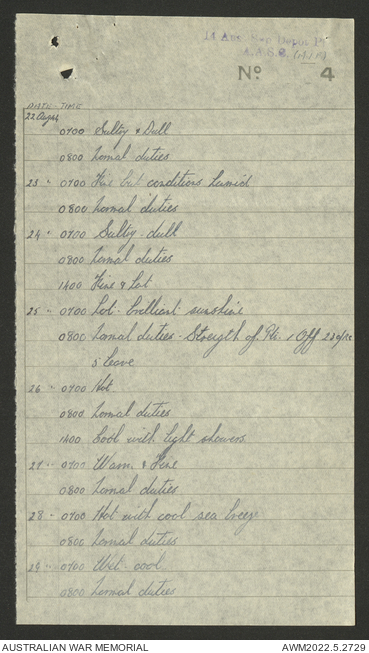 14 Aus Sup Depot Pl
A.A.S.C. (A.I.F.)
No 4
DATE TIME
22 Augst
0700 Sultry & Dull
0800 Normal duties
23 " 0700 Fine but conditions humid
0800 Normal duties
24 " 0700 Sultry - dull
0800 Normal duties
1400 Fine & Hot
25 " 0700 Hot - brilliant sunshine
0800 Normal duties - Strength of Pln 1 Off 23 o/rs
5 leave
26 " 0700 Hot
0800 Normal duties
1400 Cool with light showers
27 " 0700 Warm & Fine
0800 Normal duties
28 " 0700 Hot with cool sea breeze
0800 Normal duties
29 " 0700 Wet - cool
0800 Normal duties
AUSTRALIAN WAR MEMORIAL AWM2022.5.2729